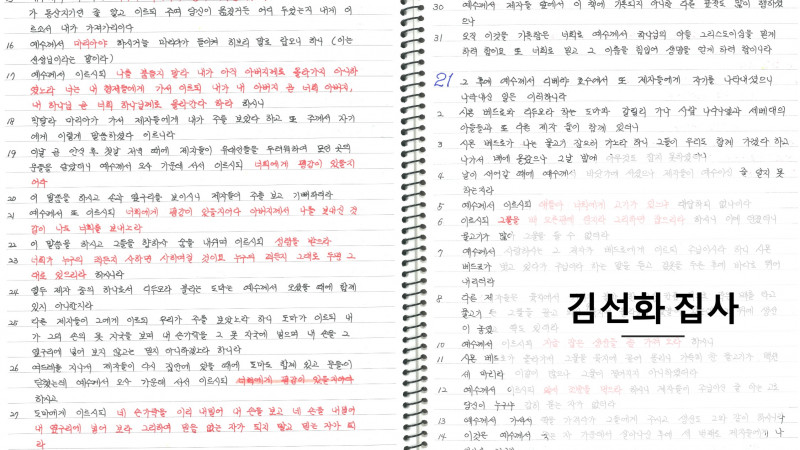 가 동산지기인 줄 알고 이르되 주여 당신이 옮겼거든 어디 두었는지 내게 이
르소서 그리하면 내가 가져가리이다
16 예수께서 마리아야 하시거늘 마리아가 돌이켜 히브리 말로 랍오니 하니 (이는
선생님이라는 말이라)
17 예수께서 이르시되 나를 붙들지 말라 내가 아직 아버지께로 올라가지 아니하
였노라 너는 내 형제들에게 가서 이르되 내가 내 아버지 곧 너희 아버지,
내 하나님 곧 너희 하나님께로 올라간다 하라 하시니
18 막달라 마리아가 가서 제자들에게 내가 주를 보았다 하고 또 주께서 자기
에게 이렇게 말씀하셨다 이르니라
19 이날 곧 안식 후 첫날 저녁 때에 제자들이 유대인들을 두려워하여 모인 곳의
문들을 닫았더니 예수께서 오사 가운데 서서 이르시되 너희에게 평강이 있을지
어다
20 이 말씀을 하시고 손과 옆구리를 보이시니 제자들이 주를 보고 기뻐하더라
21 예수께서 또 이르시되 너희에게 평강이 있을지어다 아버지께서 나를 보내신 것
같이 나도 너희를 보내노라
22 이 말씀을 하시고 그들을 향하사 숨을 내쉬며 이르시되 성령을 받으라
23 너희가 누구의 죄든지 사하면 사하여질 것이요 누구의 죄든지 그대로 두면 그
대로 있으리라 하시니라
24 열두 제자 중의 하나로서 디두모라 불리는 도마는 예수께서 오셨을 때에 함께
있지 아니한지라
25 다른 제자들이 그에게 이르되 우리가 주를 보았노라 하니 도마가 이르되 내
가 그의 손의 못 자국을 보며 내 손가락을 그 못 자국에 넣으며 내 손을 그
옆구리에 넣어 보지 않고는 믿지 아니하겠노라 하니라
26 여드레를 지나서 제자들이 다시 집안에 있을 때에 도마도 함께 있고 문들이
닫혔는데 예수께서 오사 가운데 서서 이르시되 너희에게 평강이 있을지어다
하시고
27 도마에게 이르시되 네 손가락을 이리 내밀어 내 손을 보고 네 손을 내밀어
내 옆구리에 넣어 보라 그리하여 믿음 없는 자가 되지 말고 믿는 자가 되
라
30 예수께서 제자들 앞에서 이 책에 기록되지 아니한 다른 표적도 많이 행하셨
으나
31 오직 이것을 기록함은 너희로 예수께서 하나님의 아들 그리스도이심을 믿게
하려 함이요 또 너희로 믿고 그 이름을 힘입어 생명을 얻게 하려 함이니라
21 그 후에 예수께서 디베랴 호수에서 또 제자들에게 자기를 나타내셨으니
나타내신 일은 이러하니라
2 시몬 베드로와 디두모라 하는 도마와 갈릴리 가나 사람 나다나엘과 세베대의
아들들과 또 다른 제자 둘이 함께 있더니
3 시몬 베드로가 나는 물고기 잡으러 가노라 하니 그들이 우리도 함께 가겠다 하고
나가서 배에 올랐으나 그날 밤에 아무것도 잡지 못하였더니
4 날이 새어갈 때에 예수께서 바닷가에 서셨으나 제자들이 예수이신 줄 알지 못
하는지라
5 예수께서 이르시되 얘들아 너희에게 고기가 있느냐 대답하되 없나이다
6 이르시되 그물을 배 오른편에 던지라 그리하면 잡으리라 하시니 이에 던졌더니
물고기가 많아 그물을 들 수 없더라
7 예수께서 사랑하시는 그 제자가 베드로에게 이르되 주님이시라 하니 시몬
베드로가
내리더라
8 다른 제자들은
김선화 집사
10 예수께서 이르시되 지금 잡은 생선을 좀 가져오라 하시니
11 시몬 베드로가
12 예수께서 이르시되 와서 조반을 먹으라 하시니
당신이 누구냐 감히 묻는 자가 없더라
13 예수께서 가셔서
14 이것은 예수께서